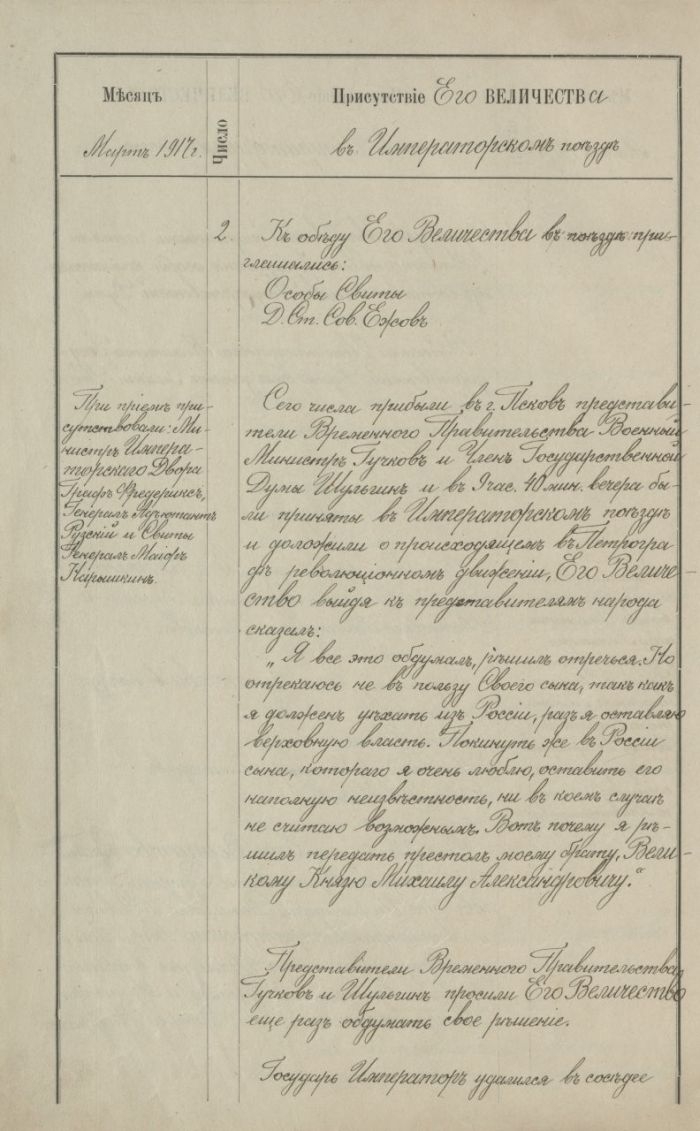 Мѣсяцъ
Мартъ 1917 г.
Число
Присутствіе Его ВЕЛИЧЕСТВа
въ Императорскомъ поѣздѣ
2.
Къ обѣду Его Величества въ поѣздѣ при-
глашались:
Особы Свиты
Д. Ст. Сов. Ежовъ
При пріемѣ при-
сутствовали: Ми-
нистръ Импера-
торскаго Двора
Графъ Фредериксъ,
Генералъ Адъютантъ
Рузскій и Свиты
Генералъ Маіоръ
Нарышкинъ.
Сего числа прибыли въ г. Псковъ представи-
тели Временного Правительства-Военный
Министръ Гучковъ и Членъ Государственной
Думы Шульгинъ и въ 9 час. 40 мин. вечера бы-
ли приняты въ Императорскомъ поѣздѣ
и доложили о происходящемъ въ Петрогра-
дѣ революціонномъ движеніи, Его Величе-
ство выйдя къ представителямъ народа
сказалъ:
„Я все это обдумалъ, рѣшилъ отречься. Но
отрекаюсь не въ пользу Своего сына, такъ какъ
я долженъ уѣхать изъ Россіи, разъ я оставляю
верховную власть. Покинуть же въ Россіи
сына, котораго я очень люблю, оставить его
наполную неизвѣстность, ни въ коемъ случаѣ
не считаю возможнымъ. Вотъ почему я рѣ-
шилъ передать престолъ моему брату, Вели-
кому Князю Михаилу Александровичу."
Представители Временного Правительства
Гучковъ и Шульгинъ просили Его Величество
еще разъ обдумать свое рѣшеніе.
Государь Императоръ удалился въ сосѣдее